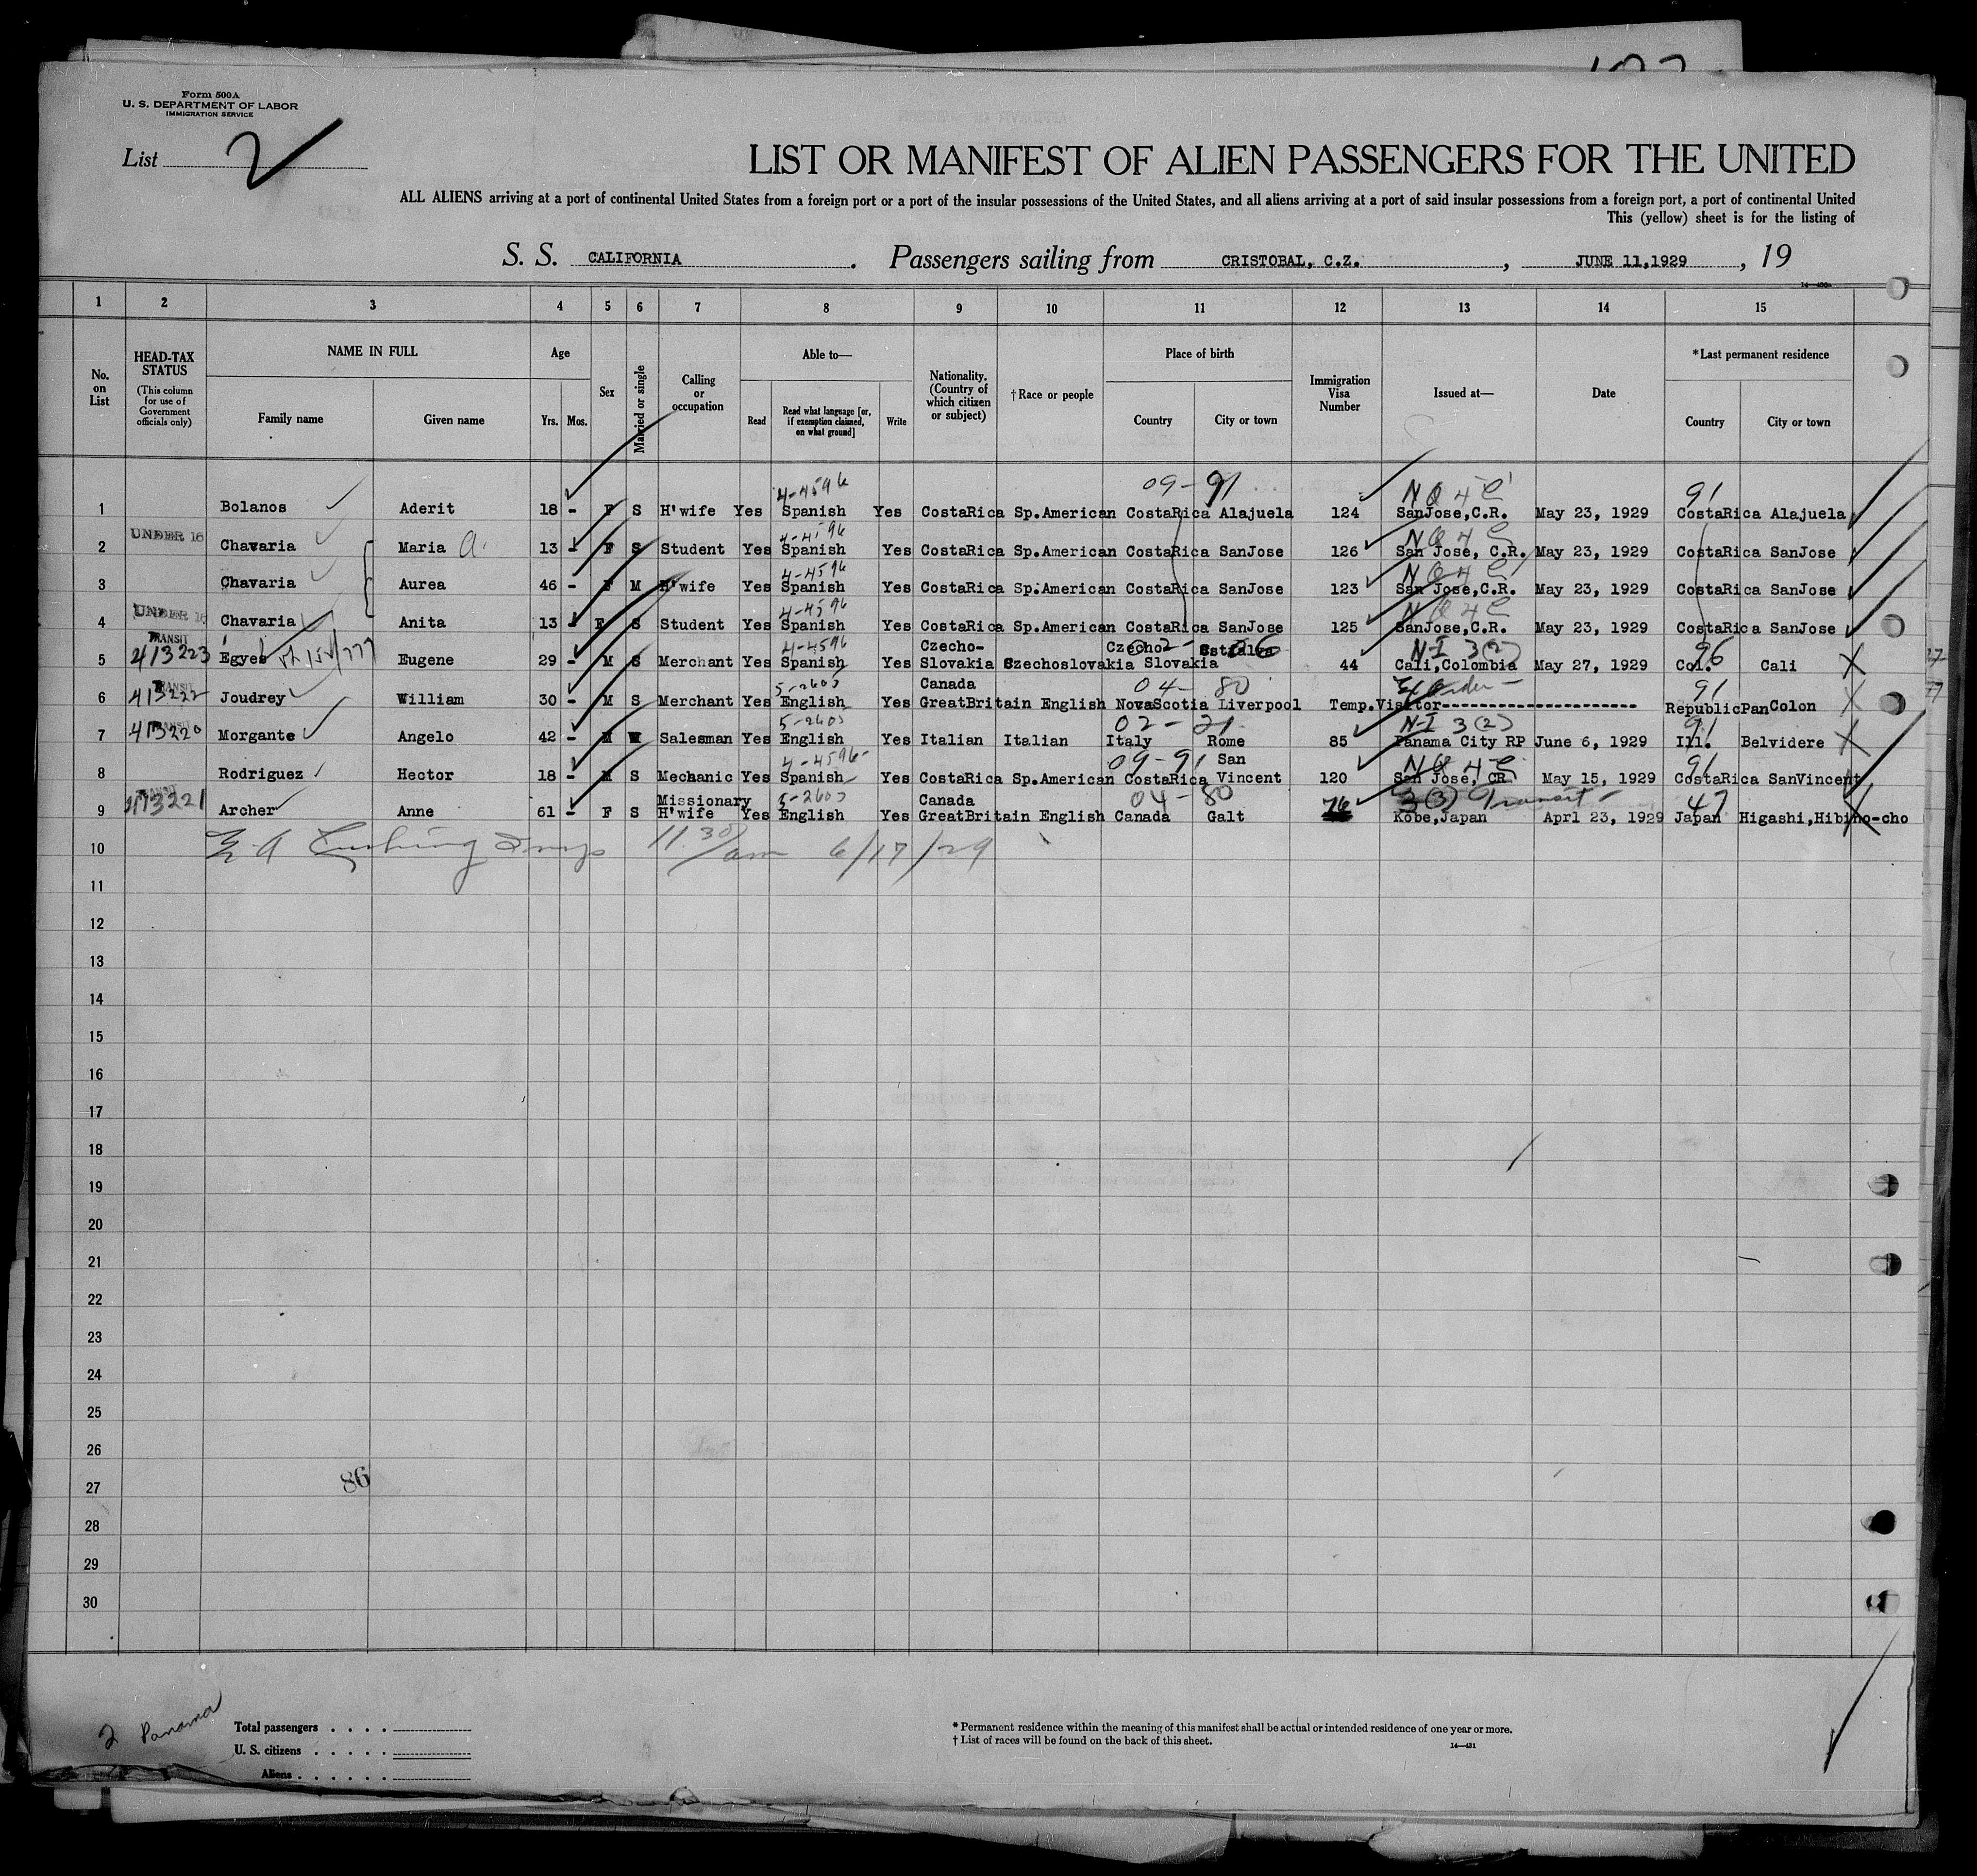 Form 500A
U. S. DEPARTMENT OF LABOR
IMMIGRATION SERVICE
List 2
LIST OR MANIFEST OF ALIEN PASSENGERS FOR THE UNITED
ALL ALIENS arriving at a port of continental United States from a foreign port or a port of the insular possessions of the United States, and all aliens arriving at a port of said insular possessions from a foreign port, a port of continental United
This (yellow) sheet is for the listing of
S. S. CALIFORNIA. Passengers sailing from CRISTOBAL, C.Z., JUNE 11,1929, 19
1 2 3 4 5 6 7 8 9 10 11 12 13 14 15
No. on List
HEAD-TAX STATUS
(This column for use of Government officials only)
NAME IN FULL
Family name
Given name
Age
Yrs. Mos.
Sex
Married or single
Calling or occupation
Able to—
Read
Read what language [or, if exemption claimed, on what ground]
Write
Nationality. (Country of which citizen or subject)
†Race or people
Place of birth
Country
City or town
Immigration Visa Number
Issued at—
Date
*Last permanent residence
Country
City or town
4-4596 09-91 NQ4C 91
1 Bolanos Aderit 18 - F S H'wife Yes Spanish Yes CostaRica Sp.American CostaRica Alajuela 124 SanJose,C.R. May 23, 1929 CostaRica Alajuela
UNDER 16 4-4596 NQ4C
2 Chavaria Maria A. 13 - F S Student Yes Spanish Yes CostaRica Sp.American CostaRica SanJose 126 San Jose, C.R. May 23, 1929 CostaRica SanJose
4-4596 NQ4C
3 Chavaria Aurea 46 - F M H'wife Yes Spanish Yes CostaRica Sp.American CostaRica SanJose 123 San Jose,C.R. May 23, 1929 CostaRica SanJose
UNDER 16 4-4596 NQ4C
4 Chavaria Anita 13 - F S Student Yes Spanish Yes CostaRica Sp.American CostaRica SanJose 125 SanJose,C.R. May 23, 1929 CostaRica SanJose
TRANSIT 4-4596 Czecho- Czecho N-I 3(2) 96
5 413223 Egyes Eugene 29 - M S Merchant Yes Spanish Yes Slovakia Szechoslovakia Slovakia 44 Cali,Colombia May 27, 1929 Col. Cali
TRANSIT 5-2603 Canada 04-80 91
6 413222 Joudrey William 30 - M S Merchant Yes English Yes GreatBritain English NovaScotia Liverpool Temp.Visitor---------------------- RepublicPanColon
TRANSIT 5-2603 02-21 N-I 3(2) 91
7 413220 Morgante Angelo 42 - M M Salesman Yes English Yes Italian Italian Italy Rome 85 Panama City RP June 6, 1929 Ill. Belvidere
4-4596 09-91 San NQ4C 91
8 Rodriguez Hector 18 - M S Mechanic Yes Spanish Yes CostaRica Sp.American CostaRica Vincent 120 San Jose, CR May 15, 1929 CostaRica SanVincent
Missionary 5-2603 Canada 04-80 3(3) Transit 47
9 413221 Archer Anne 61 - F S H'wife Yes English Yes GreatBritain English Canada Galt 76 Kobe,Japan Aprl 23, 1929 Japan Higashi,Hibino-cho
10 E A Cushing Insp 11.30/am 6/17/29
11
12
13
14
15
16
17
18
19
20
21
22
23
24
25
26
27
86
28
29
30
2 Panama
Total passengers . . . .
U. S. citizens . . . . .
Aliens . . . . . .
* Permanent residence within the meaning of this manifest shall be actual or intended residence of one year or more.
† List of races will be found on the back of this sheet.
14—431